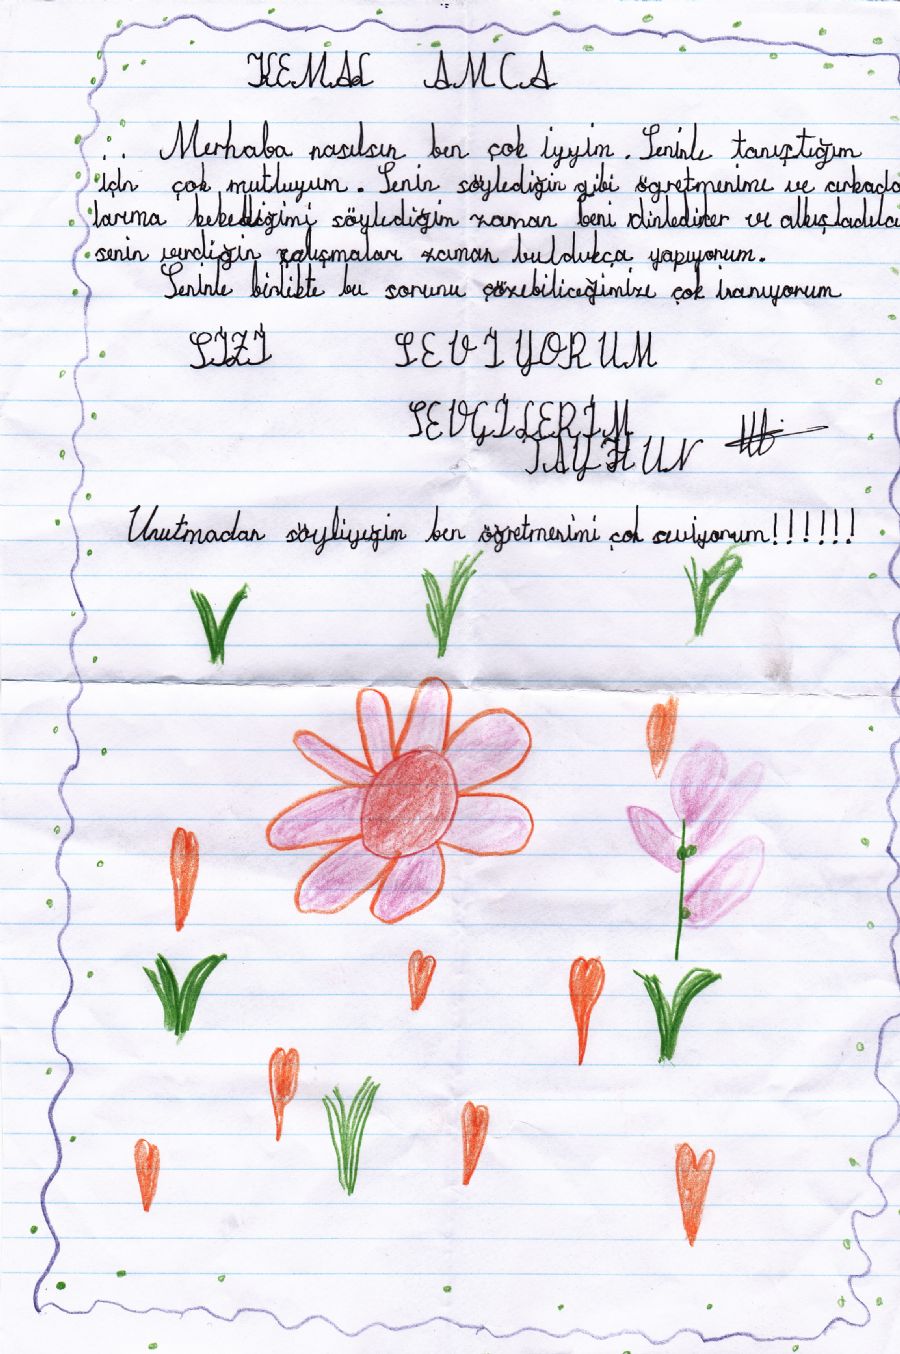 KEMAL AMCA
... Merhaba nasılsın ben çok iyyim. Seninle tanıştığım
için çok mutluyum. Senin söylediğin gibi öğretmenime ve arkada
larıma kekelediğimi söylediğin zaman beni dinlediler ve alkışladılar
senin verdiğin çalışmaları zaman buldukça yapıyorum.
Seninle birlikte bu sorunu çözebiliceğimize çok inanıyorum
SİZİ SEVİYORUM
SEVGİLERİM
TAYHUN
Unutmadan söyliyeğim ben öğretmenimi çok seviyorum!!!!!!